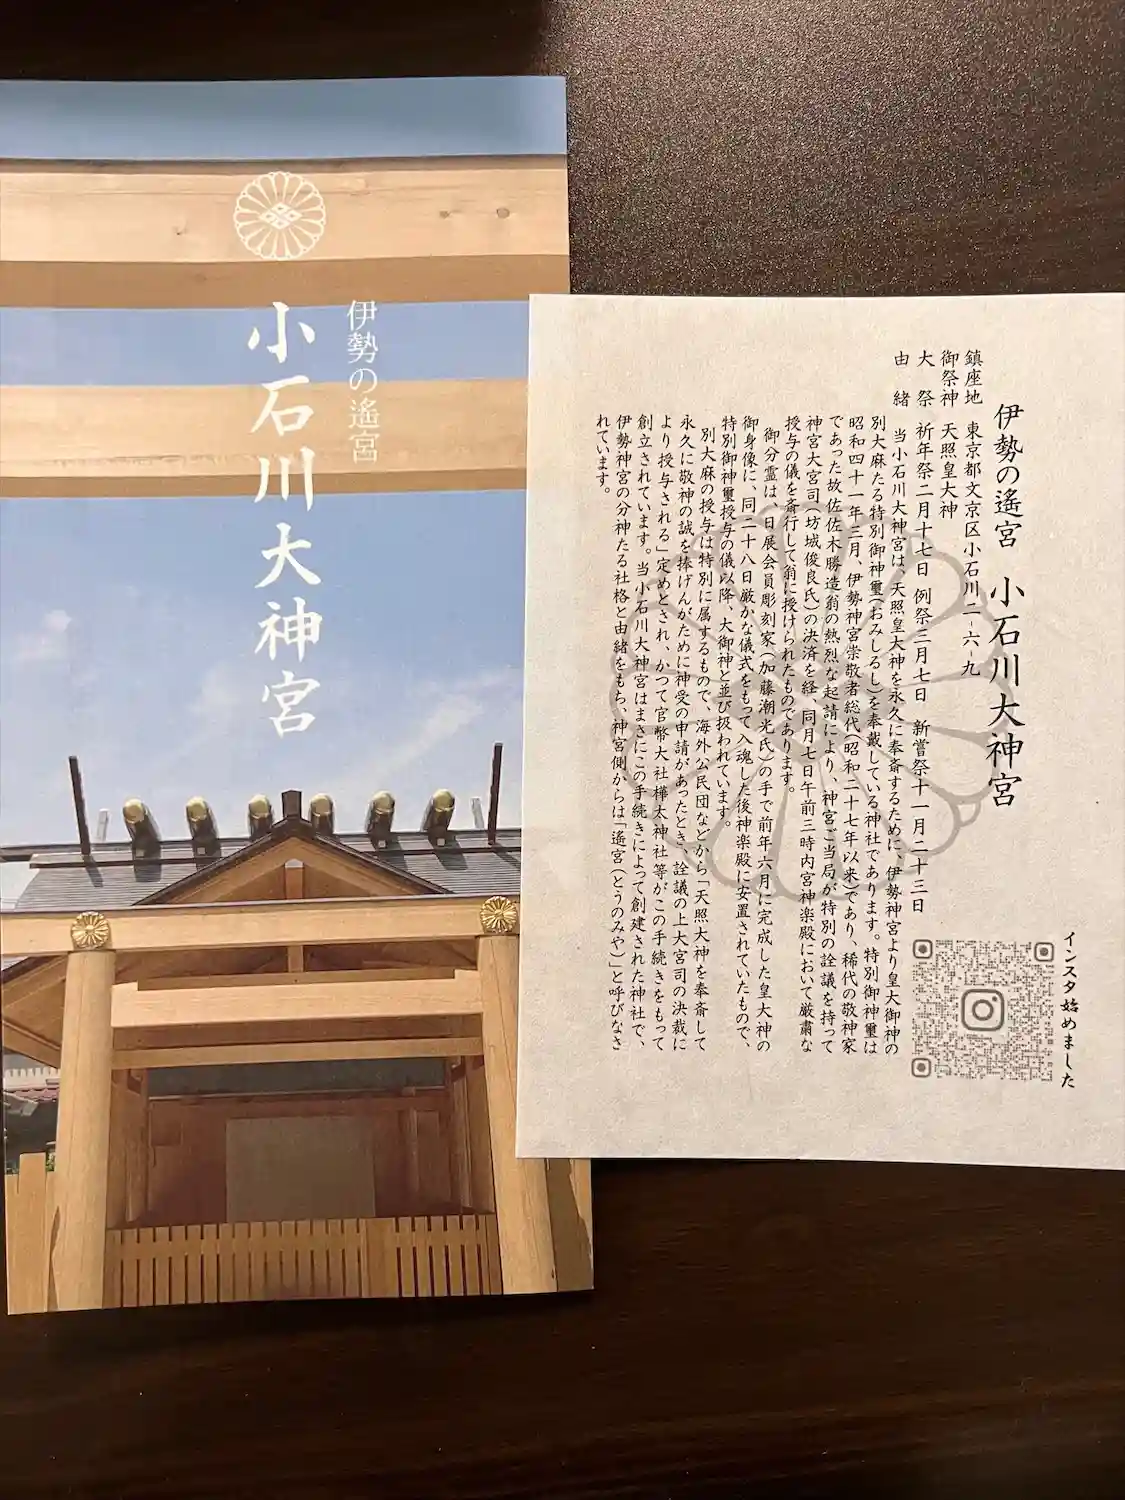 伊勢の遙宮
小石川大神宮
伊勢の遙宮 小石川大神宮
鎮座地 東京都文京区小石川二-六-九
御祭神 天照皇大神
大祭 祈年祭二月十七日 例祭三月七日 新嘗祭十一月二十三日
由緒 当小石川大神宮は、天照皇大神を永久に奉斎するために、伊勢神宮より皇大御神の
別大麻たる特別御神璽(おみしるし)を奉戴している神社であります。特別御神璽は
昭和四十一年三月、伊勢神宮崇敬者総代(昭和二十七年以来)であり、稀代の敬神家
であった故佐佐木勝造翁の熱烈な起請により、神宮ご当局が特別の詮議を持って
神宮大宮司(坊城俊良氏)の決済を経、同月七日午前三時内宮神楽殿において厳粛な
授与の儀を斎行して翁に授けられたものであります。
御分霊は、日展会員彫刻家(加藤潮光氏)の手で前年六月に完成した皇大神の
御身像に、同二十八日厳かな儀式をもって入魂した後神楽殿に安置されていたもので、
特別御神璽授与の儀以降、大御神と並び扱われています。
別大麻の授与は特別に属するもので、海外公民団などから「天照大神を奉斎して
永久に敬神の誠を捧げんがために神受の申請があったとき、詮議の上大宮司の決裁に
より授与される」定めとされ、かつて官幣大社樺太神社等がこの手続きをもって
創立されています。当小石川大神宮はまさにこの手続きによって創建された神社で、
伊勢神宮の分神たる社格と由緒をもち、神宮側からは「遙宮(とうのみや)」と呼びなさ
れています。
インスタ始めました